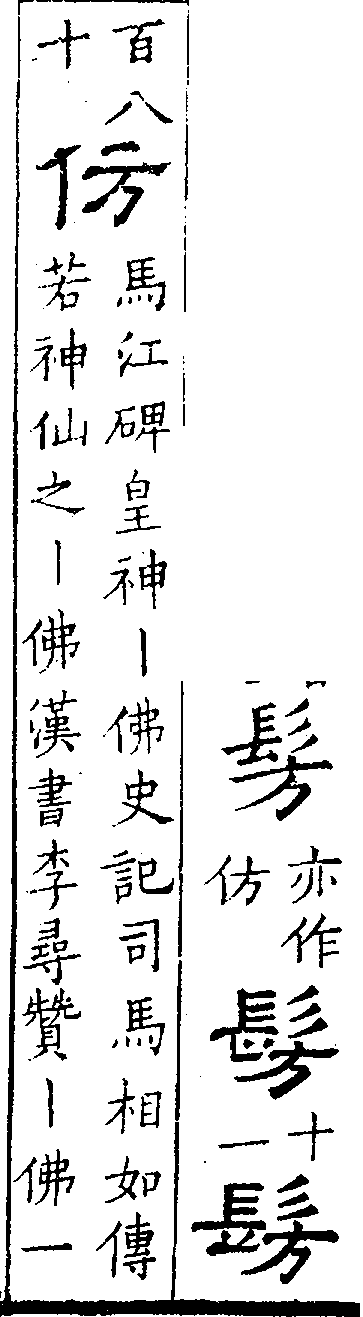 髣
亦作
仿
髣
十
一
髣
百八
十
仿
馬江碑皇神丨佛史記司馬相如傳
若神仙之丨佛漢書李尋贊丨佛一